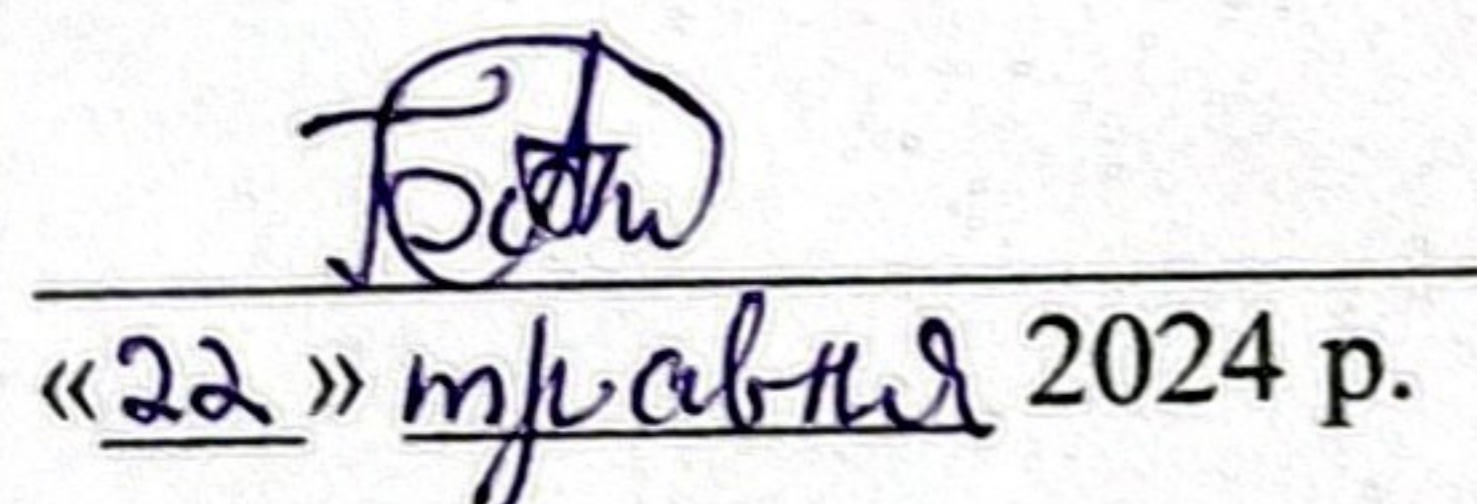 «22» травня 2024 р.